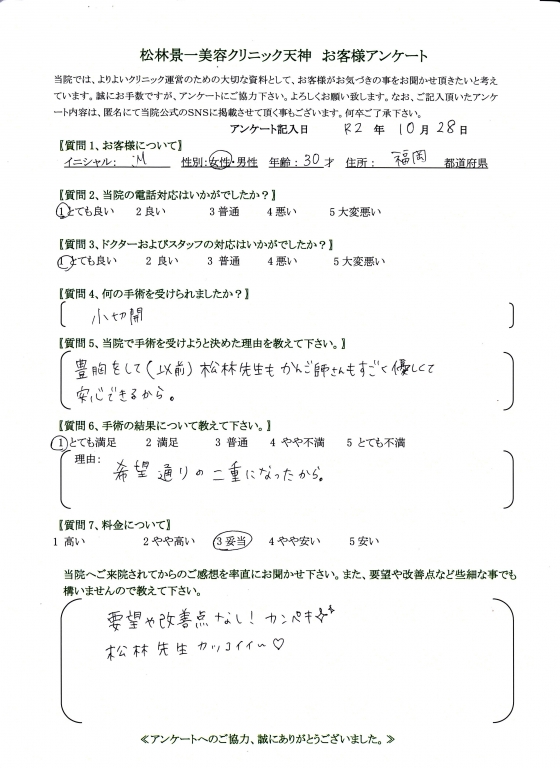 松林景一美容クリニック天神　お客様アンケート
当院では、よりよいクリニック運営のための大切な資料として、お客様がお気づきの事をお聞かせ頂きたいと考え
ています。誠にお手数ですが、アンケートにご協力下さい。よろしくお願い致します。なお、ご記入頂いたアンケ
ート内容は、匿名にて当院公式のSNSに掲載させて頂く事もございます。何卒ご了承下さい。
アンケート記入日　R2 年 10 月 28 日
〖質問 1、お客様について〗
イニシャル： M　性別：女性・男性　年齢：30 才　住所：　福岡　都道府県
〖質問 2、当院の電話対応はいかがでしたか？〗
1 とても良い　2 良い　3 普通　4 悪い　5 大変悪い
〖質問 3、ドクターおよびスタッフの対応はいかがでしたか？〗
1 とても良い　2 良い　3 普通　4 悪い　5 大変悪い
〖質問 4、何の手術を受けられましたか？〗
小切開
〖質問 5、当院で手術を受けようと決めた理由を教えて下さい。〗
豊胸をして(以前) 松林先生もかんご師さんもすごく優しくて
安心できるから。
〖質問 6、手術の結果について教えて下さい。〗
1 とても満足　2 満足　3 普通　4 やや不満　5 とても不満
理由：
希望通りの二重になったから。
〖質問 7、料金について〗
1 高い　2 やや高い　3 妥当　4 やや安い　5 安い
当院へご来院されてからのご感想を率直にお聞かせ下さい。また、要望や改善点など些細な事でも
構いませんので教えて下さい。
要望や改善点なし！カンペキ
松林先生カッコイイ〜♡
≪アンケートへのご協力、誠にありがとうございました。≫